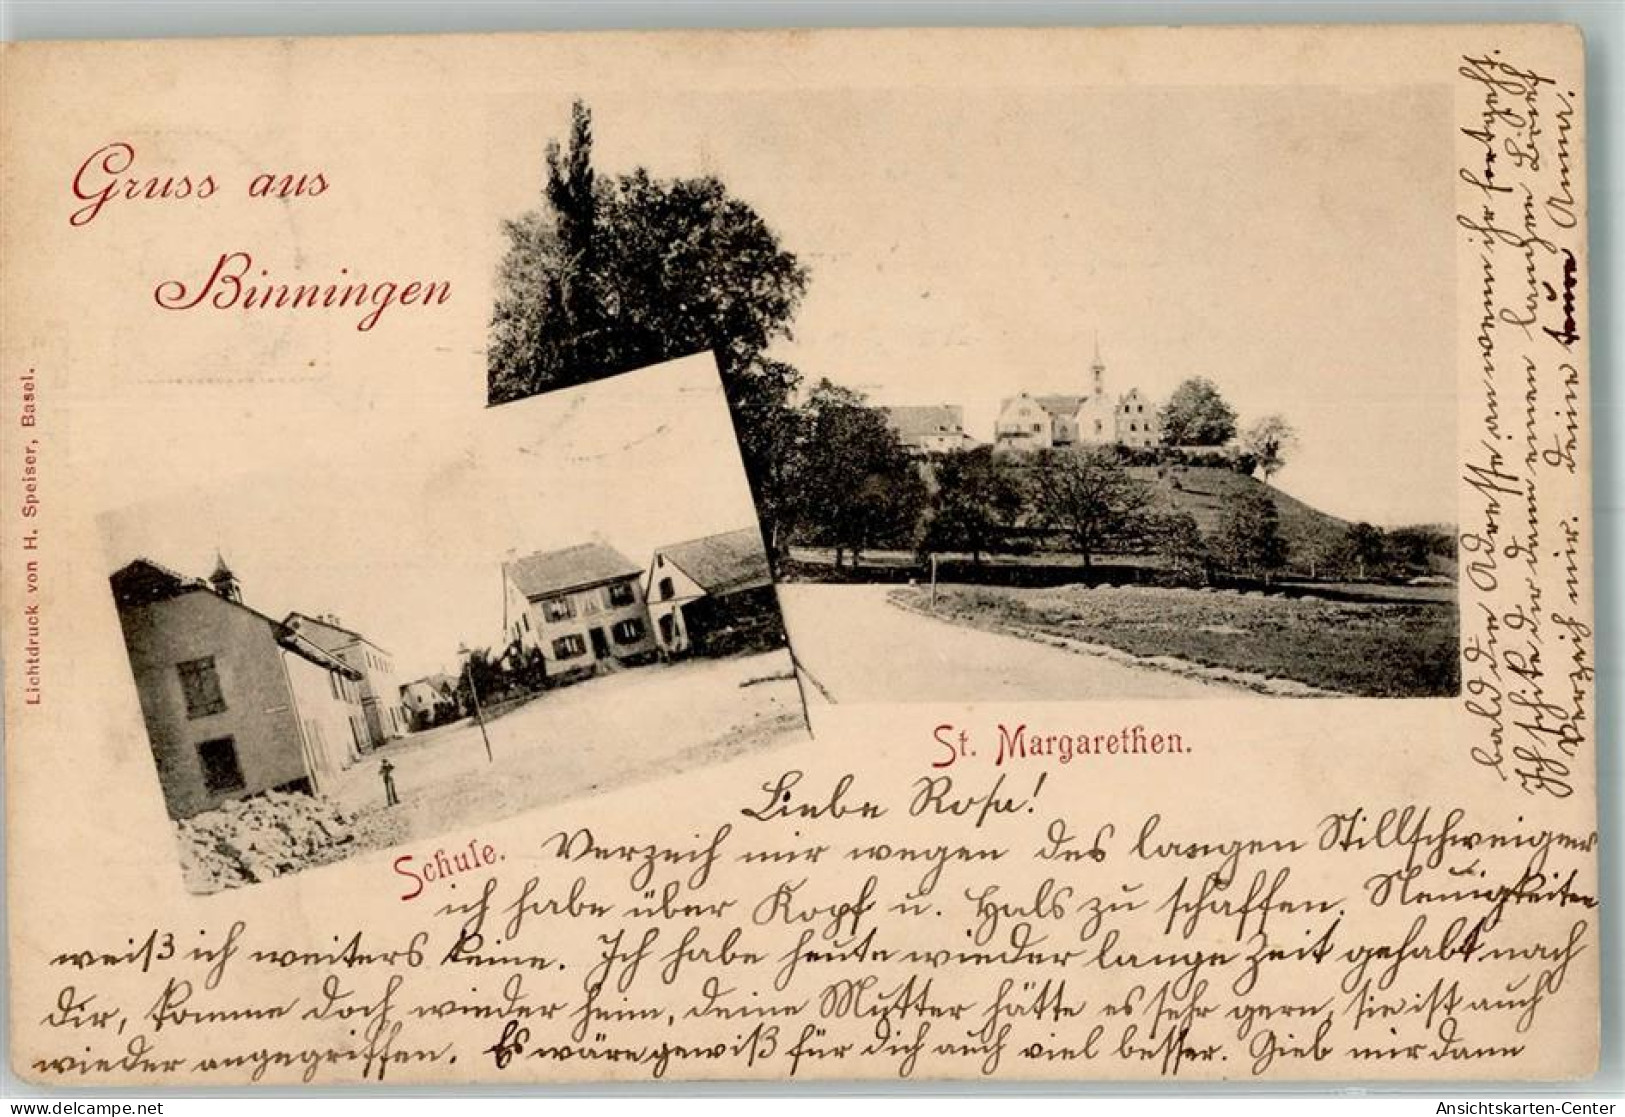 Gruss aus
Binningen
Lichtdruck von H. Speiser, Basel.
St. Margarethen.
Schule.
Liebe Rosa!
Verzeih mir wegen des langen Stillschweigens
ich habe über Kopf u. Hals zu schaffen. Neuigkeiten
weiß ich weiters keine. Ich habe heute wieder lange Zeit gehabt nach
Dir, komme doch wieder heim, deine Mutter hätte es sehr gern, sie ist auch
wieder angegriffen. Es wäre gewiß für dich auch viel besser. Gieb mir dann
bald die Adresse an wenn ihr fortgeht.
Ich schike Dir dann einen langen Brief
Verzeih mir. deine Anna.
Ansichtskarten-Center
www.delcampe.net